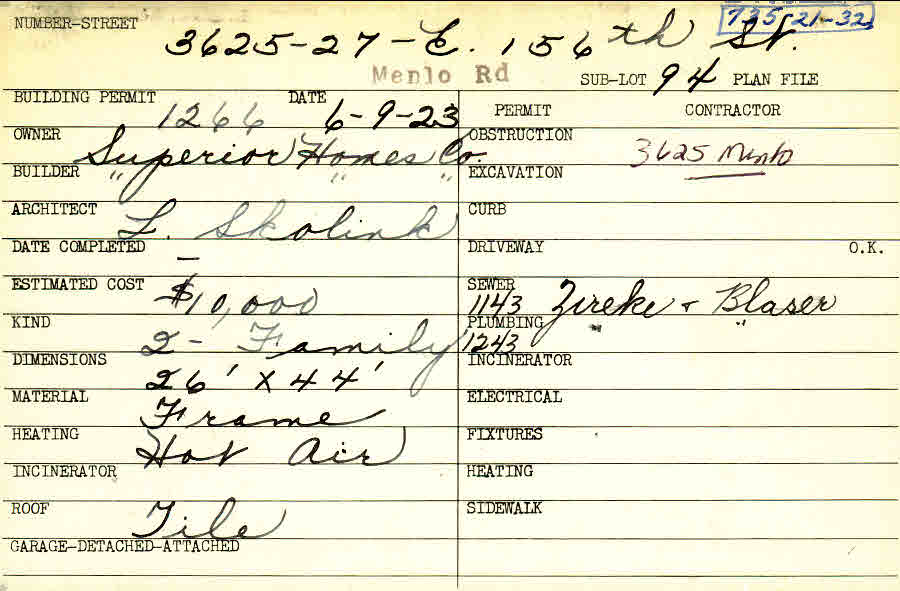 NUMBER-STREET 3625-27-E. 156th St. 735-21-32
Menlo Rd SUB-LOT 94 PLAN FILE
BUILDING PERMIT 1266 DATE 6-9-23 PERMIT CONTRACTOR
OWNER Superior Homes Co. OBSTRUCTION 3625 Menlo
BUILDER " " " EXCAVATION
ARCHITECT L. Skolink CURB
DATE COMPLETED - DRIVEWAY O.K.
ESTIMATED COST $10,000 SEWER 1143 Zireke & Blaser
KIND 2-Family PLUMBING 1243 " "
DIMENSIONS 26' X 44' INCINERATOR
MATERIAL Frame ELECTRICAL
HEATING Hot Air FIXTURES
INCINERATOR HEATING
ROOF Tile SIDEWALK
GARAGE-DETACHED-ATTACHED